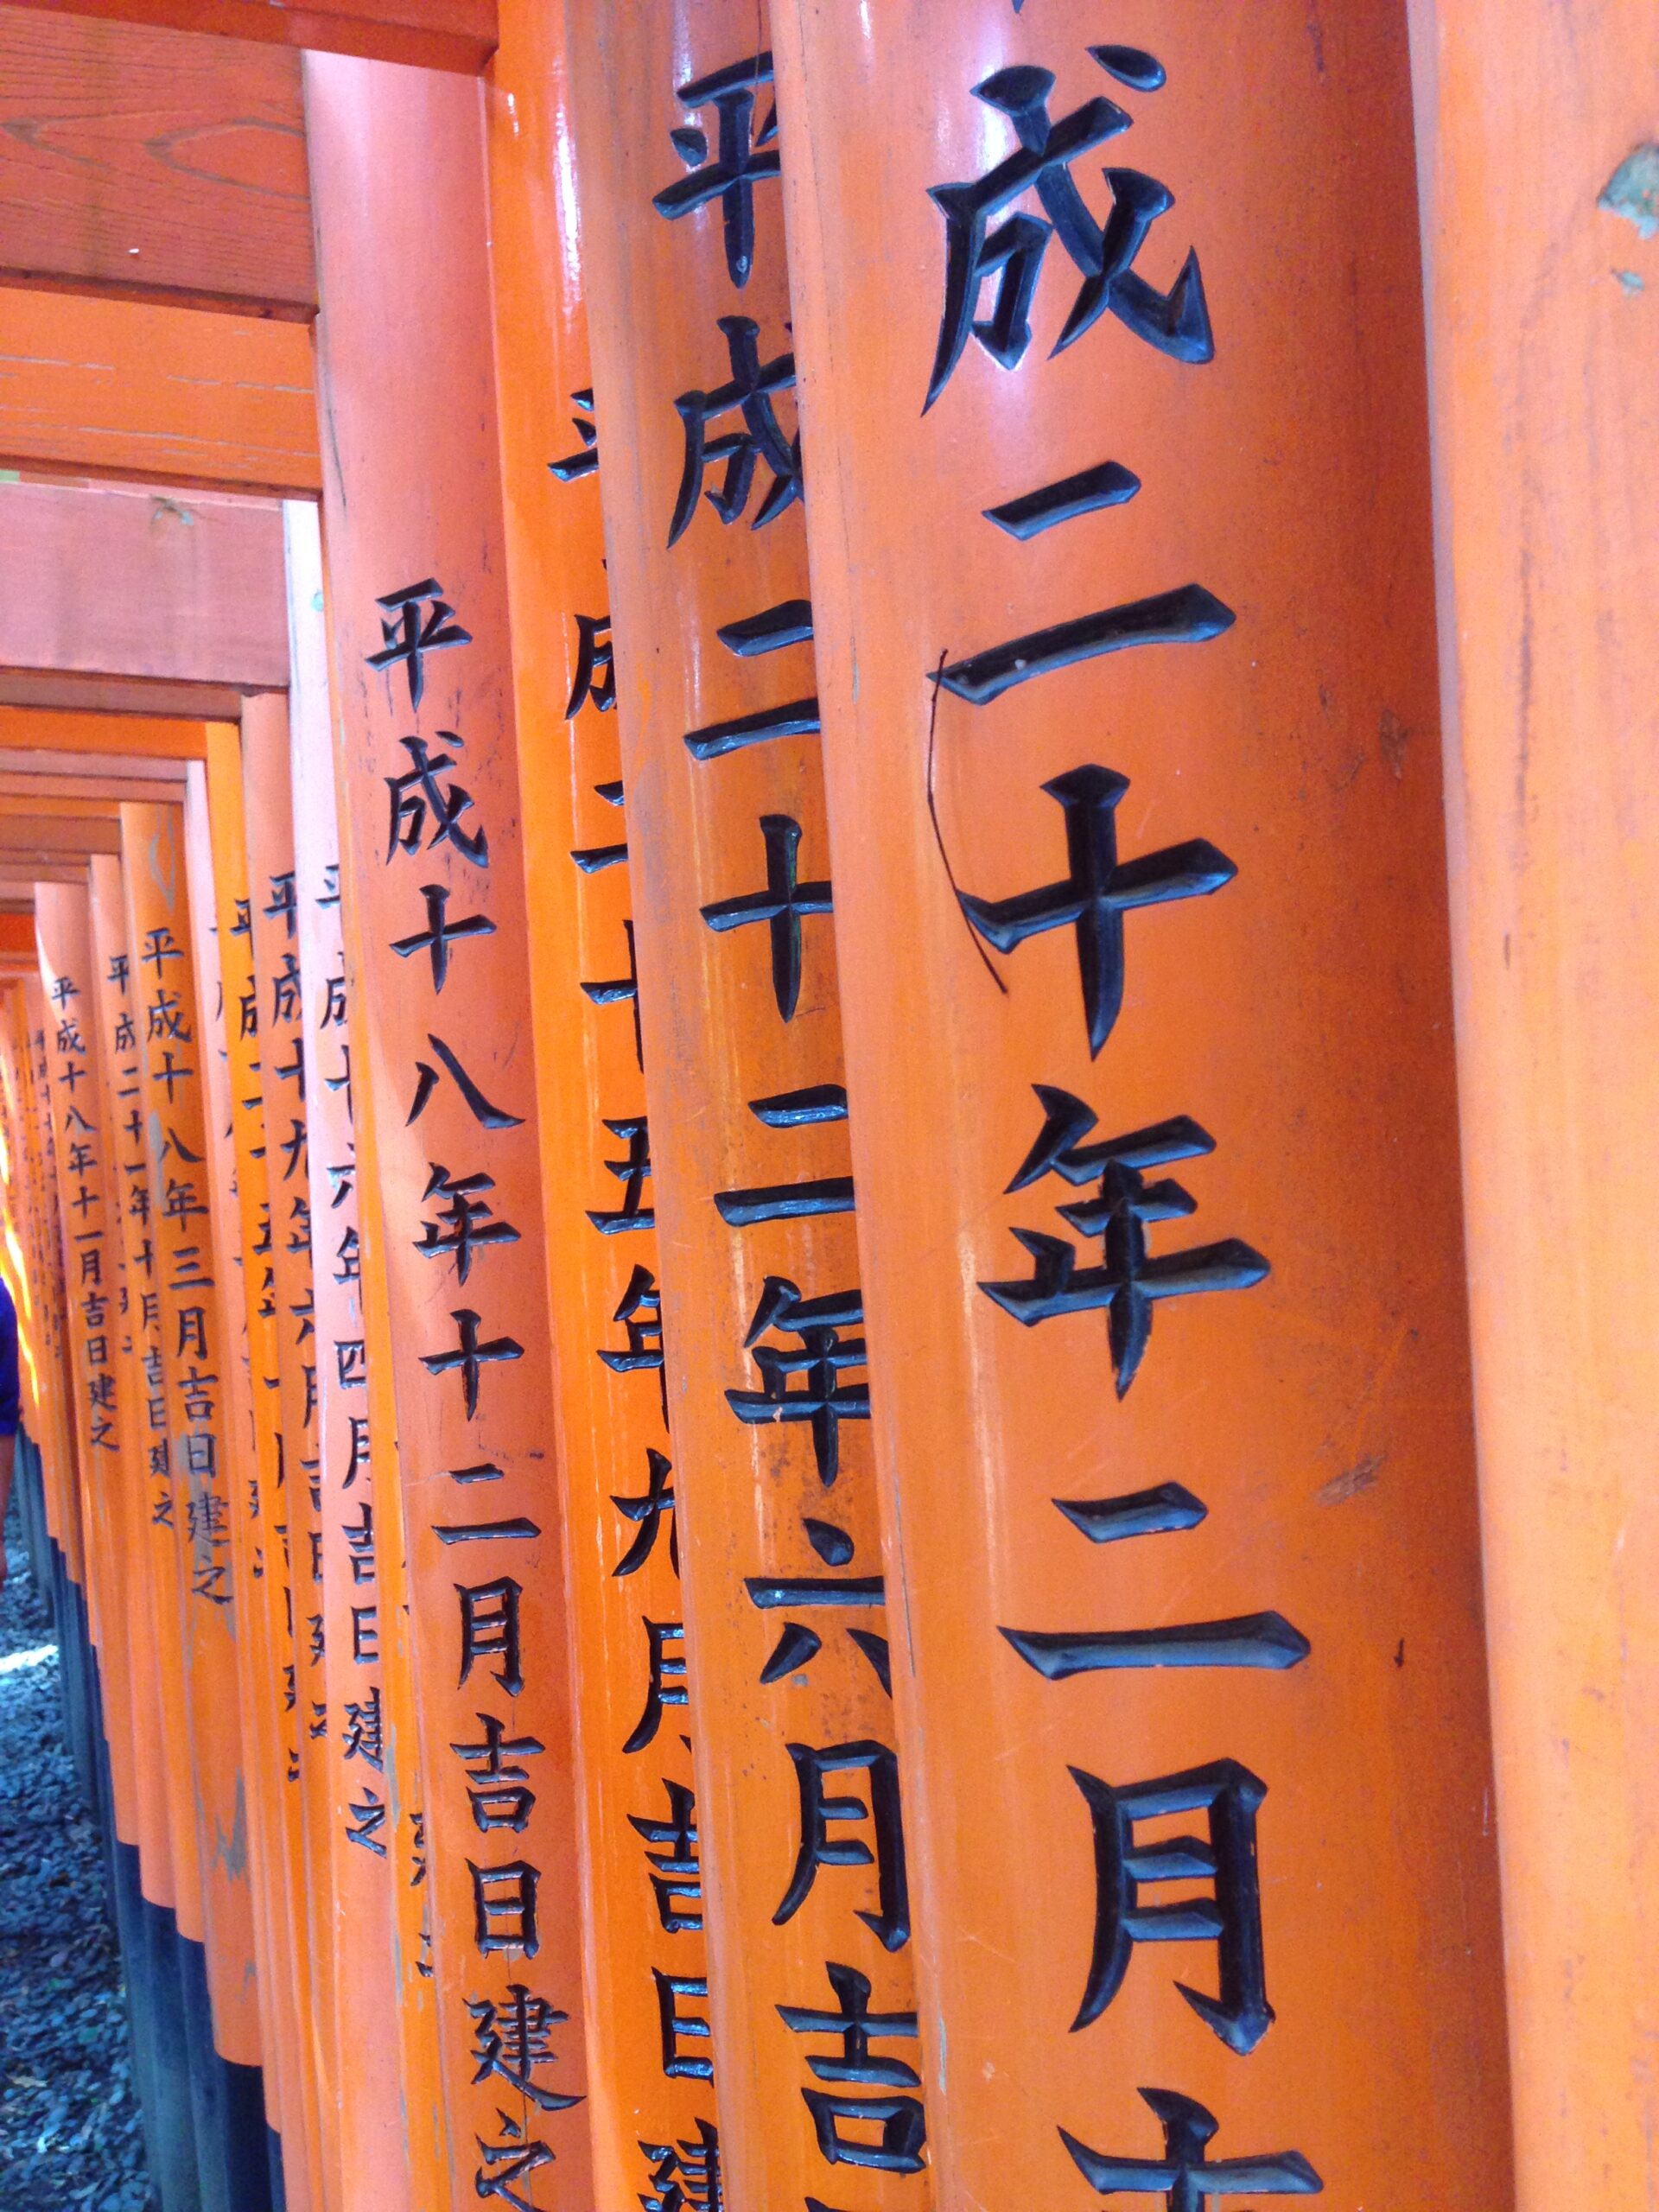 成二十年二月
平成二十二年六月吉
平成二十五年九月吉日建
平成十八年十二月吉日建之
平成十六年四月吉日建之
平成十九年六月吉日建
平成十八年三月吉日建之
平成二十一年十月吉日建之
平成十八年十一月吉日建之